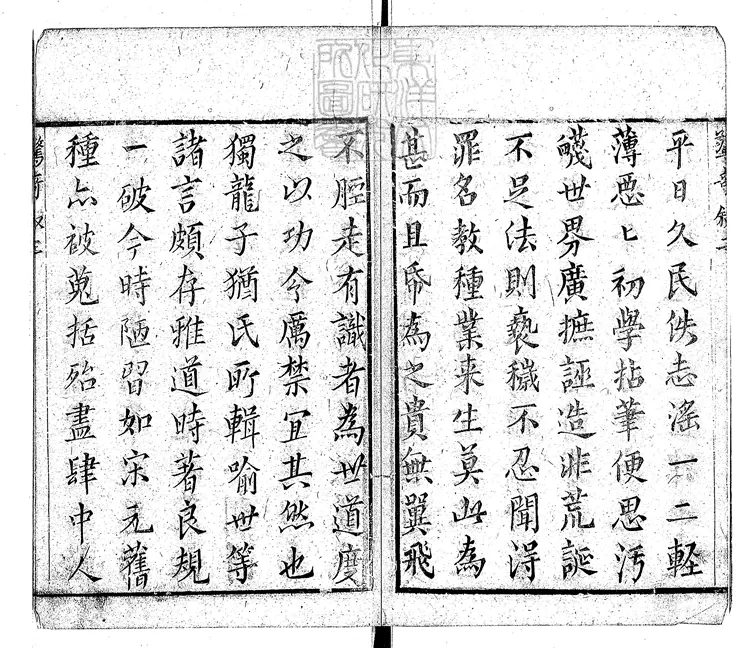 平日久民佚志滛一二輕
薄惡匕初學拈筆便思汚
衊世界廣摭誣造非荒誕
不足法則褻穢不忍聞淂
罪名教種業来生莫此為
甚而且帋為之貴無翼飛
不脛走有識者為世道虞
之以功令厲禁宜其然也
獨龍子猶氏所輯喻世等
諸言頗存雅道時著良規
一破今時陋習如宋元舊
種亦被蒐括殆盡肆中人